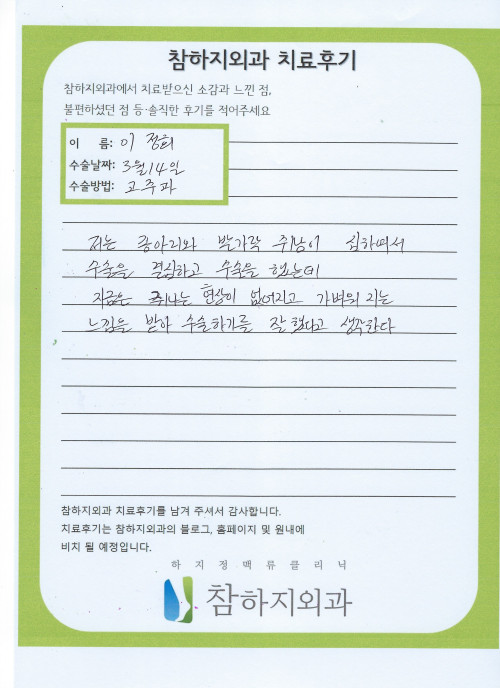 참하지외과 치료후기
참하지외과에서 치료받으신 소감과 느낀 점,
불편하셨던 점 등·솔직한 후기를 적어주세요
이 름: 이 정희
수술날짜: 3월14일
수술방법: 고주파
저는 종아리와 발가락 쥐남이 심하여서
수술을 결심하고 수술을 했는데
지금은 쥐나는 현상이 없어지고 가벼워 지는
느낌을 받아 수술하기를 잘했다고 생각한다
참하지외과 치료후기를 남겨 주셔서 감사합니다.
치료후기는 참하지외과의 블로그, 홈페이지 및 원내에
비치 될 예정입니다.
하지정맥류클리닉
참하지외과